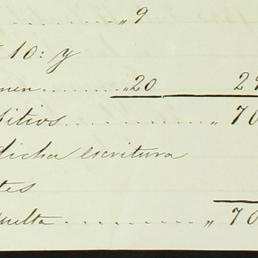 .....„ 9
10: y
nen..„20 29
sitios........„ 70
dicha escritura
tes
quelta.........„ 70